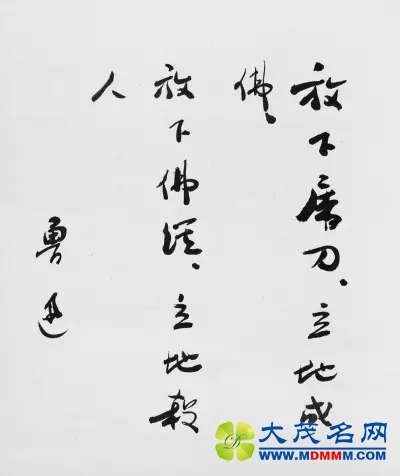 放下屠刀、立地成
佛、
放下佛经、立地杀
人
鲁迅
大茂名网
WWW.MDMMM.COM